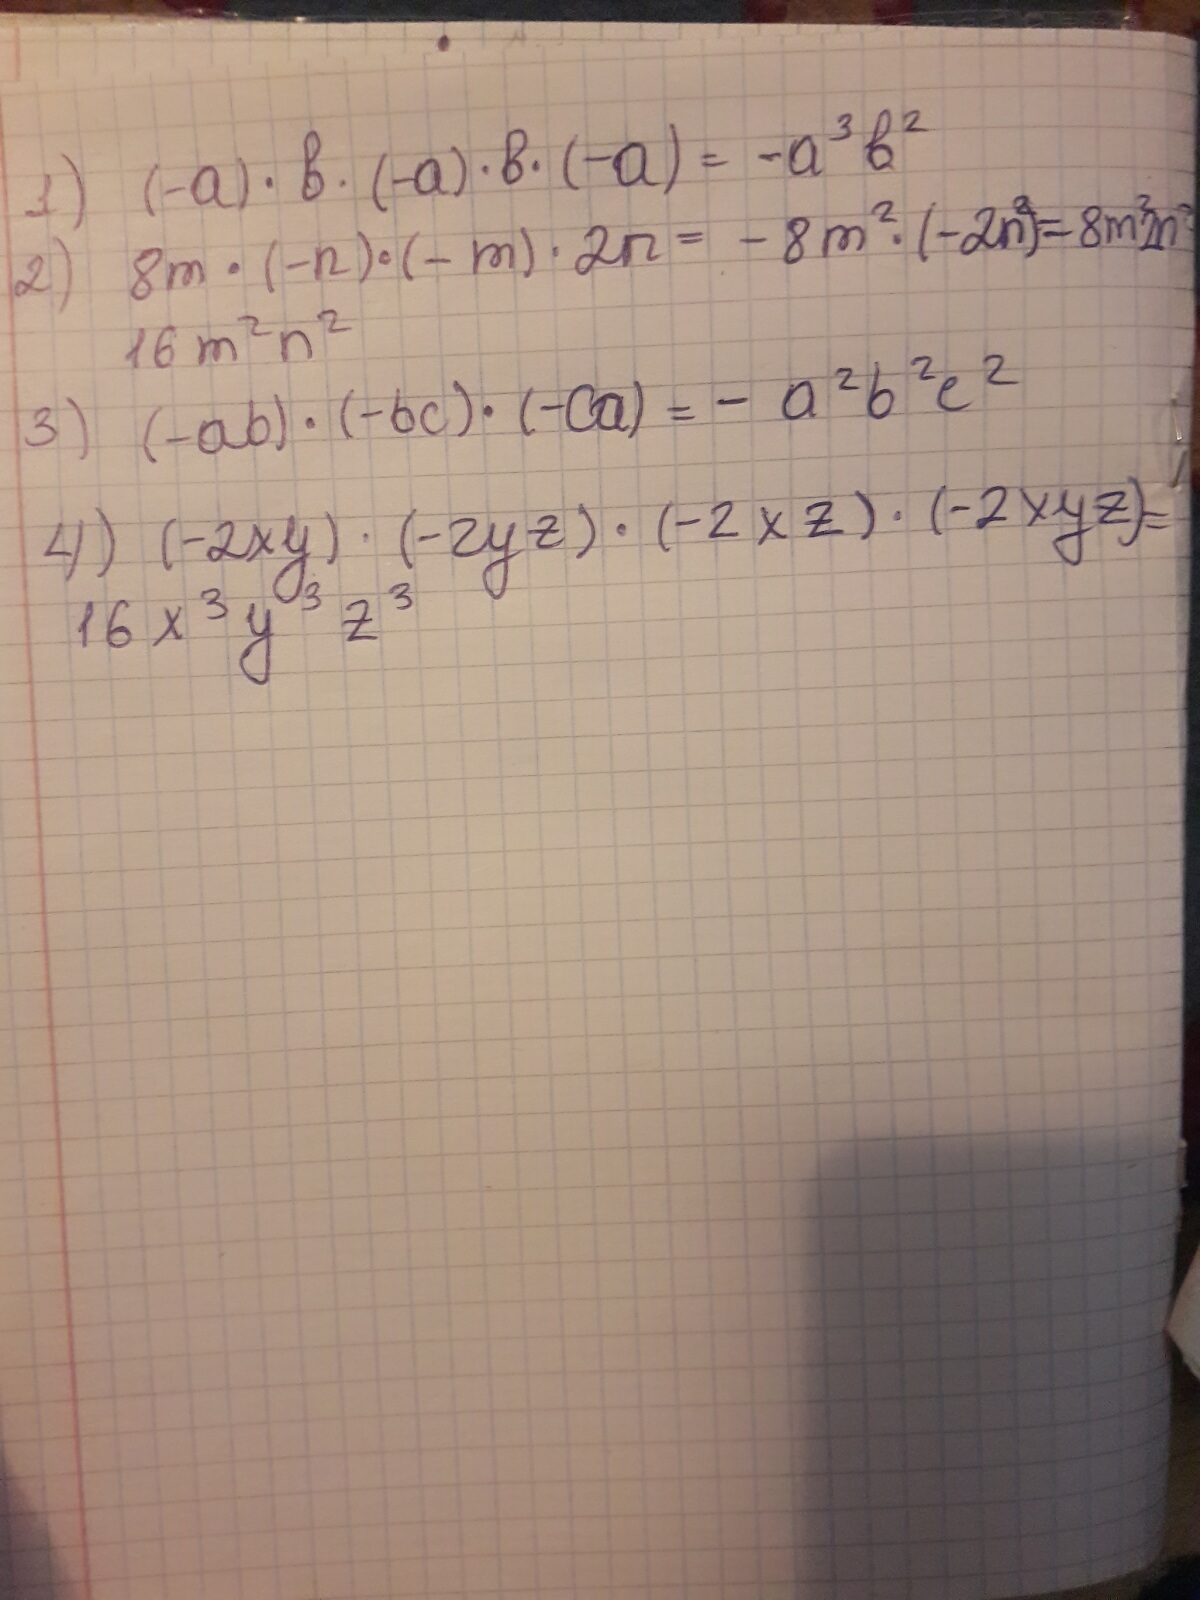 1) (-a)·b·(-a)·b·(-a) = -a³b²
2) 8m·(-n)·(-m)·2n = -8m²·(-2n²)=8m²2n²
16m²n²
3) (-ab)·(-bc)·(-ca) = -a²b²c²
4) (-2xy)·(-2yz)·(-2xz)·(-2xyz)=
16x³y³z³